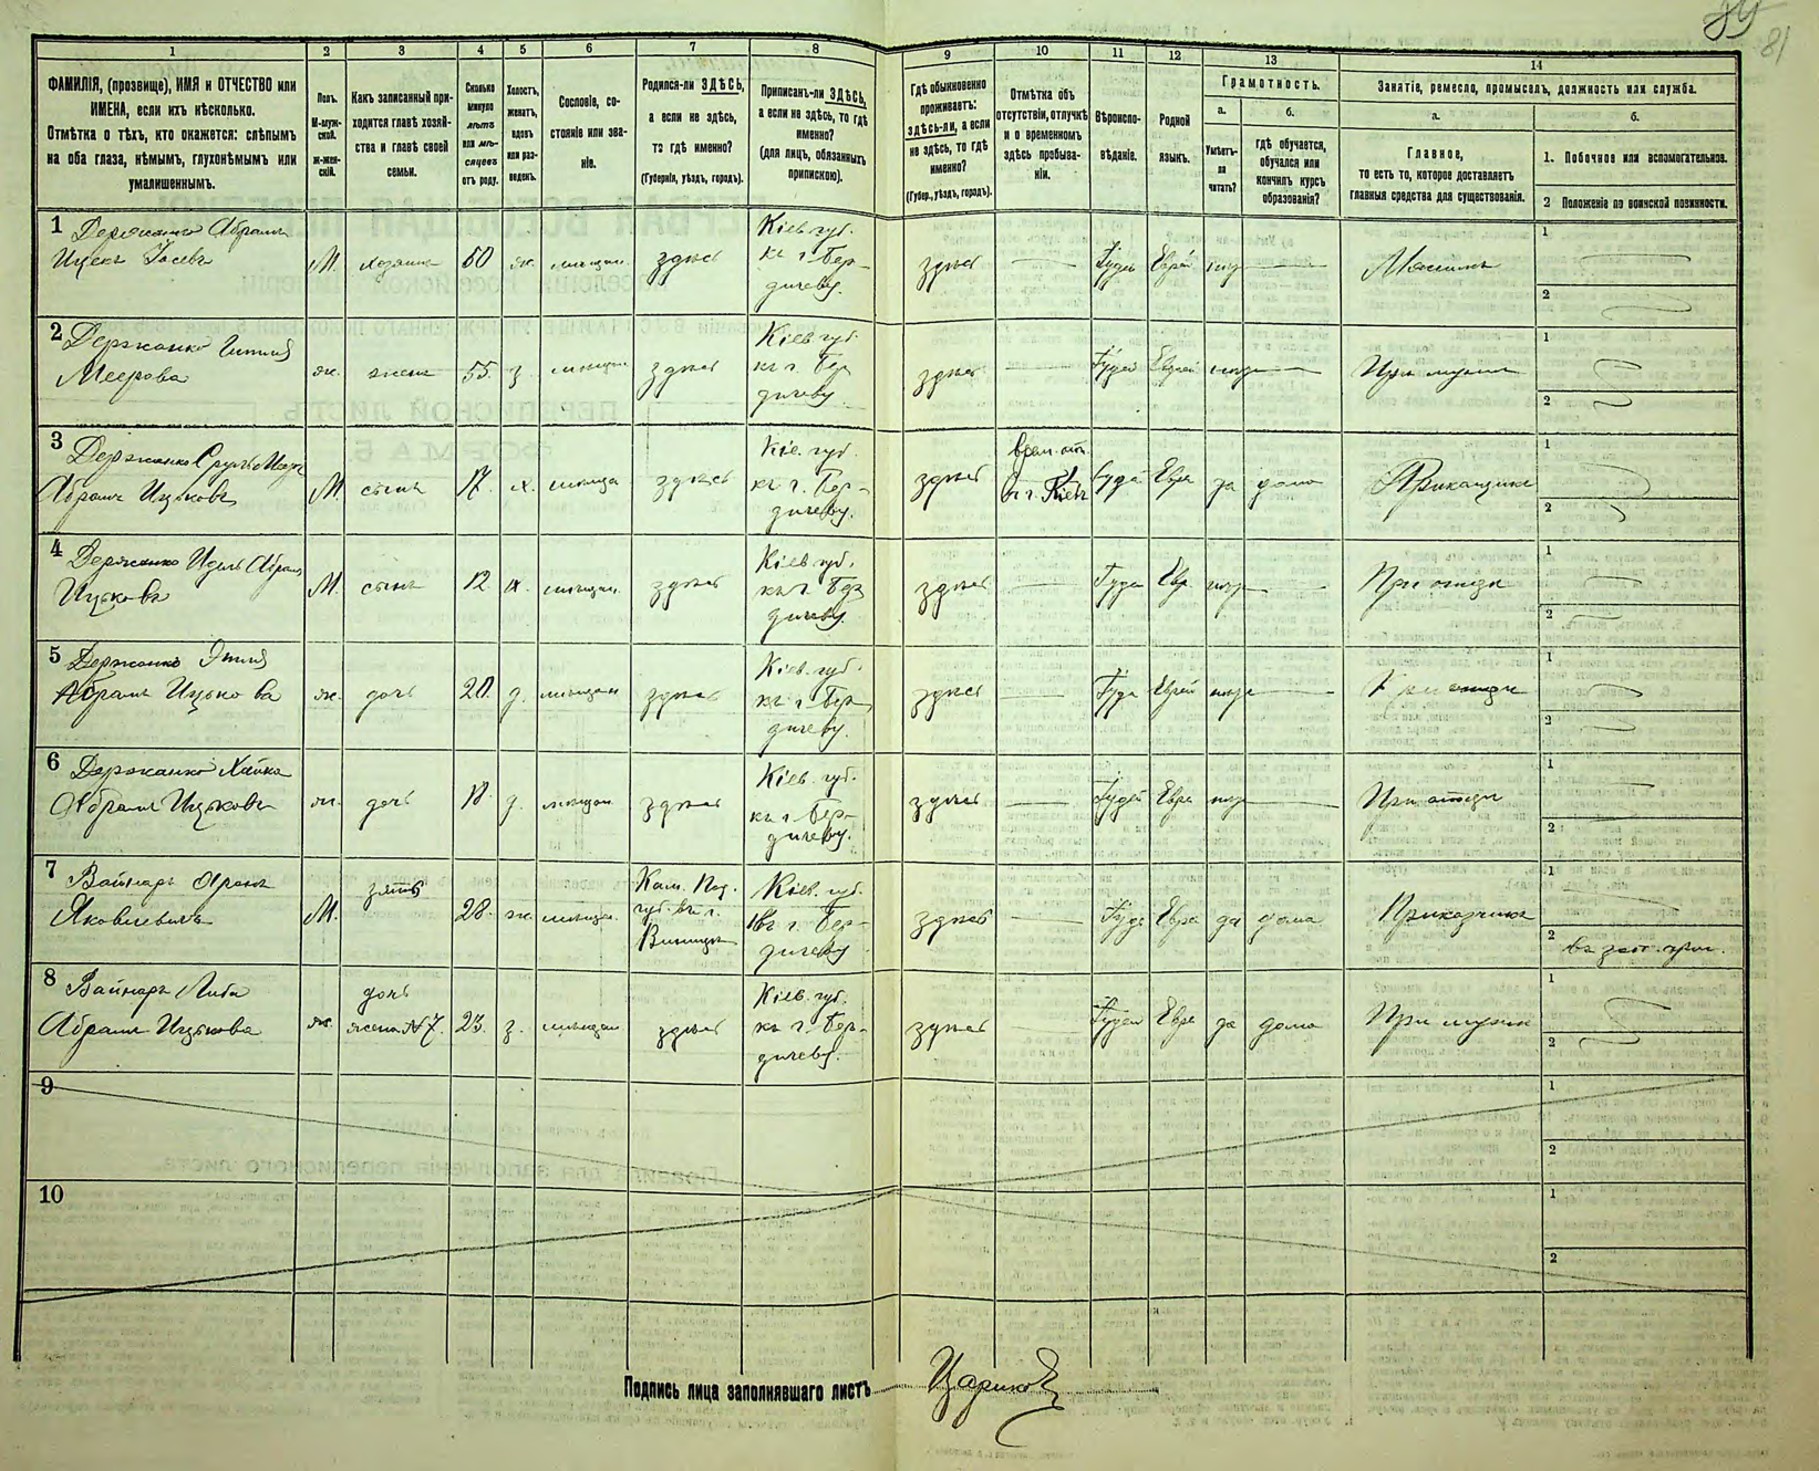 81
1 2 3 4 5 6 7 8 9 10 11 12 13 14
ФАМИЛІЯ, (прозвище), ИМЯ и ОТЧЕСТВО или
ИМЕНА, если ихъ нѣсколько.
Отмѣтка о тѣхъ, кто окажется: слѣпымъ
на оба глаза, нѣмымъ, глухонѣмымъ или
умалишеннымъ.
Полъ.
М-муж-
ской.
Ж-жен-
скій.
Какъ записанный при-
ходится главѣ хозяй-
ства и главѣ своей
семьи.
Сколько
минуло
лѣтъ
или мѣ-
сяцевъ
отъ роду.
Холостъ,
женатъ,
вдовъ
или раз-
веденъ.
Сословіе, со-
стояніе или зва-
ніе.
Родился-ли ЗДѢСЬ,
а если не здѣсь,
то гдѣ именно?
(Губернія, уѣздъ, городъ).
Приписанъ-ли ЗДѢСЬ,
а если не здѣсь, то гдѣ
именно?
(для лицъ, обязанныхъ
припискою).
Гдѣ обыкновенно
проживаетъ:
здѣсь-ли, а если
не здѣсь, то гдѣ
именно?
(Губер., уѣздъ, городъ).
Отмѣтка объ
отсутствіи, отлучкѣ
и о временномъ
здѣсь пребыва-
ніи.
Вѣроиспо-
вѣданіе.
Родной
языкъ.
Грамотность.
а.
Умѣетъ-
ли
читать?
б.
гдѣ обучается,
обучался или
кончилъ курсъ
образованія?
Занятіе, ремесло, промыселъ, должность или служба.
а.
Главное,
то есть то, которое доставляетъ
главныя средства для существованія.
б.
1. Побочное или вспомогательное.
2 Положеніе по воинской повинности.
1 Держанко Абрамъ
Ицекъ Іосевъ
М. хозяинъ 60 ж. мѣщан. здѣсь
Кіев. губ.
къ г. Бер-
дичеву.
здѣсь Іудей Еврей
1
2
2 Держанко
Меерова
ж. жена 55. з. мѣщан здѣсь
Кіев губ.
къ г. Бер
дичеву
здѣсь Іудей Еврей При мужѣ
1
2
3 Держанко Сруль
Абрамъ Ицьковъ
М. сынъ 17. х. мѣщан здѣсь
Кіе. губ.
къ г. Бер-
дичеву.
здѣсь
врем. от.
въ г. Кіевъ
Іудей Евре да дома Приказчикъ
1
2
4 Держанко Идель Абрамъ
Ицьковъ
М. сынъ 12 х. мѣщан. здѣсь
Кіев губ.
къ г. Бер
дичеву
здѣсь Іудей Евр. При отцѣ
1
2
5 Держанко
Абрамъ Ицькова
ж. дочь 20. д. мѣщан здѣсь
Кіев. губ.
къ г. Бер
дичеву.
здѣсь Іуде Еврей При отцѣ
1
2
6 Держанко Хайка
Абрамъ Ицькова
ж. дочь 18. д. мѣщан. здѣсь
Кіев. губ.
къ г. Бер-
дичеву.
здѣсь Іудей Евре При отцѣ
1
2
7 Вайнаръ Аронъ
Яковлевичъ
М. зять 28. ж. мѣщан.
Кам. Под.
губ. въ г.
Винницѣ
Кіев. губ.
къ г. Бер-
дичеву
здѣсь Іуде Евре да дома Приказчикъ
1
2
8 Вайнаръ Либа
Абрамъ Ицькова
ж.
дочь
жена №7. 23. з. мѣщан здѣсь
Кіев. губ.
къ г. Бер-
дичеву.
здѣсь Іудей Евре да дома При мужѣ
1
2
9
1
2
10
1
2
Подпись лица заполнявшаго листъ